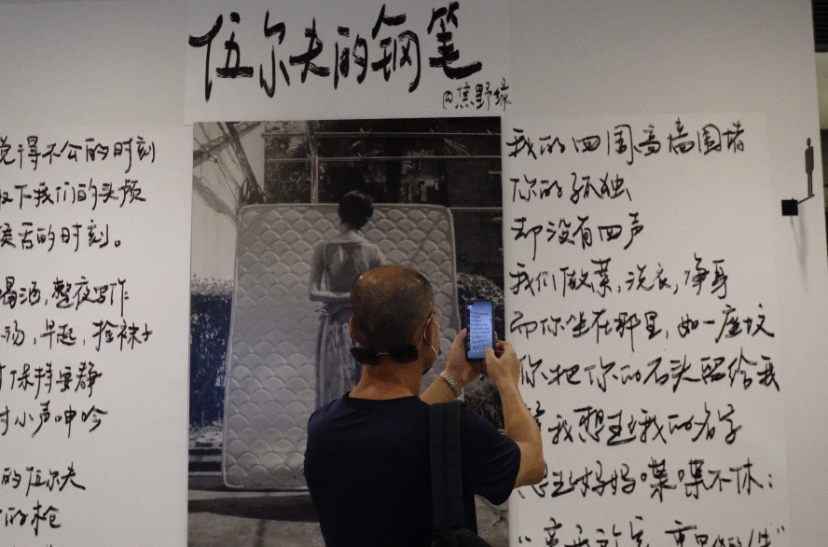 伍尔夫的钢笔
@焦野绿
觉得不公的时刻
下我们的头颅
的时刻。
喝酒,整夜写作
汤,早起,捡袜子
保持安静
时小声呻吟
的伍尔夫
的枪
我的四周高墙围堵
你的孤独
却没有四声
我们做菜,洗衣,净身
而你坐在那里,如一座坟
你把你的石头留给我
我想起我的名字
想起妈妈喋喋不休: